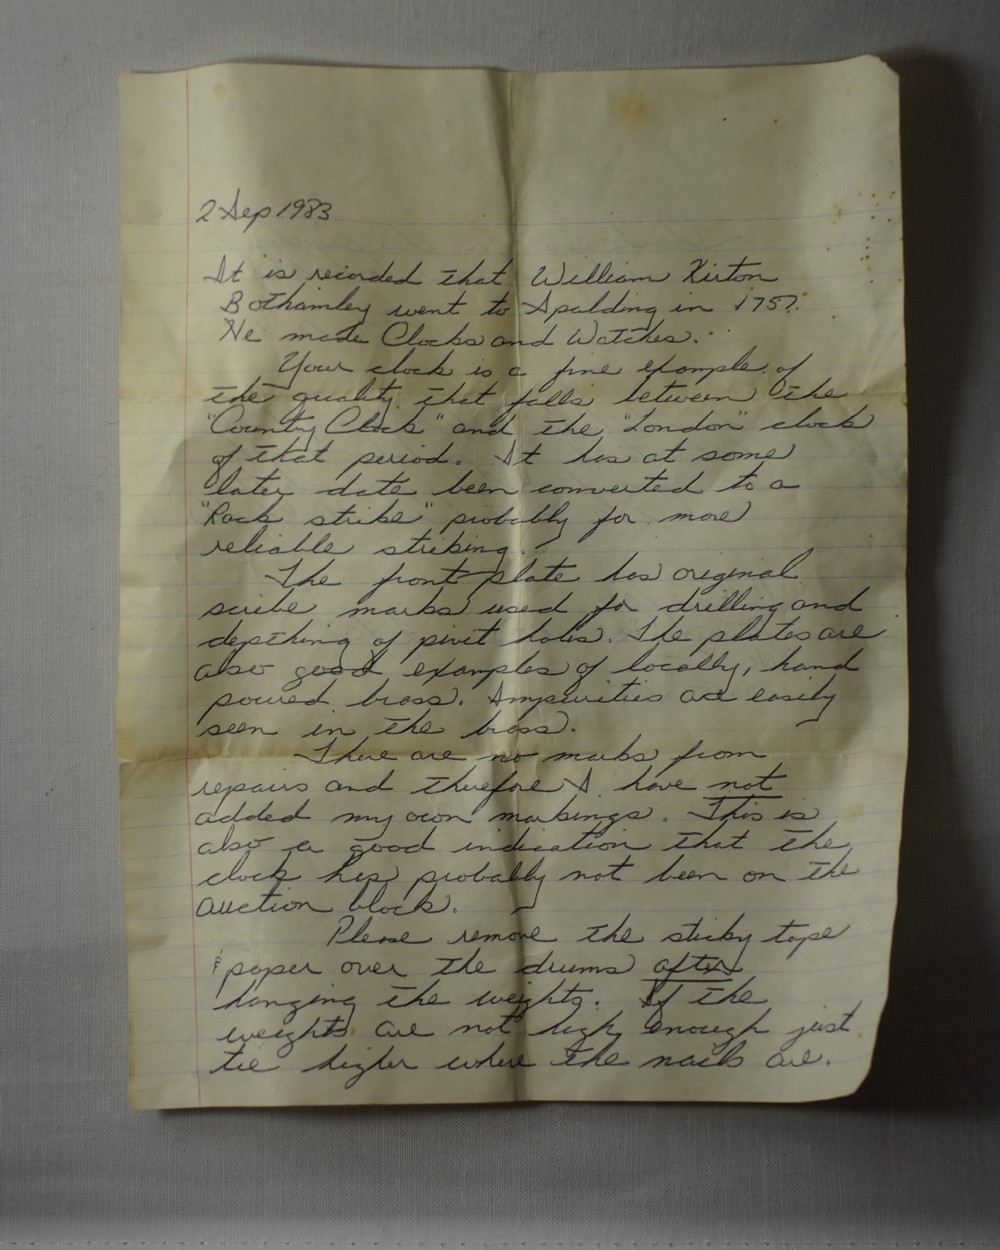 2 Sep 1983
It is recorded that William Kirton
Bothamley went to Spalding in 1757.
He made Clocks and Watches.
Your clock is a fine example of
the quality that falls between the
"Country Clock" and the "London" clock
of that period. It has at some
later date been converted to a
"Rack strike" probably for more
reliable striking.
The front plate has original
scribe marks used for drilling and
depthing of pivit holes. The plates are
also good examples of locally, hand
poured brass. Impurities are easily
seen in the brass.
There are no marks from
repairs and therefore I have not
added my own markings. This is
also a good indication that the
clock has probably not been on the
auction block.
Please remove the sticky tape
& paper over the drums after
hanging the weights. If the
weights are not high enough just
tie higher where the nails are.